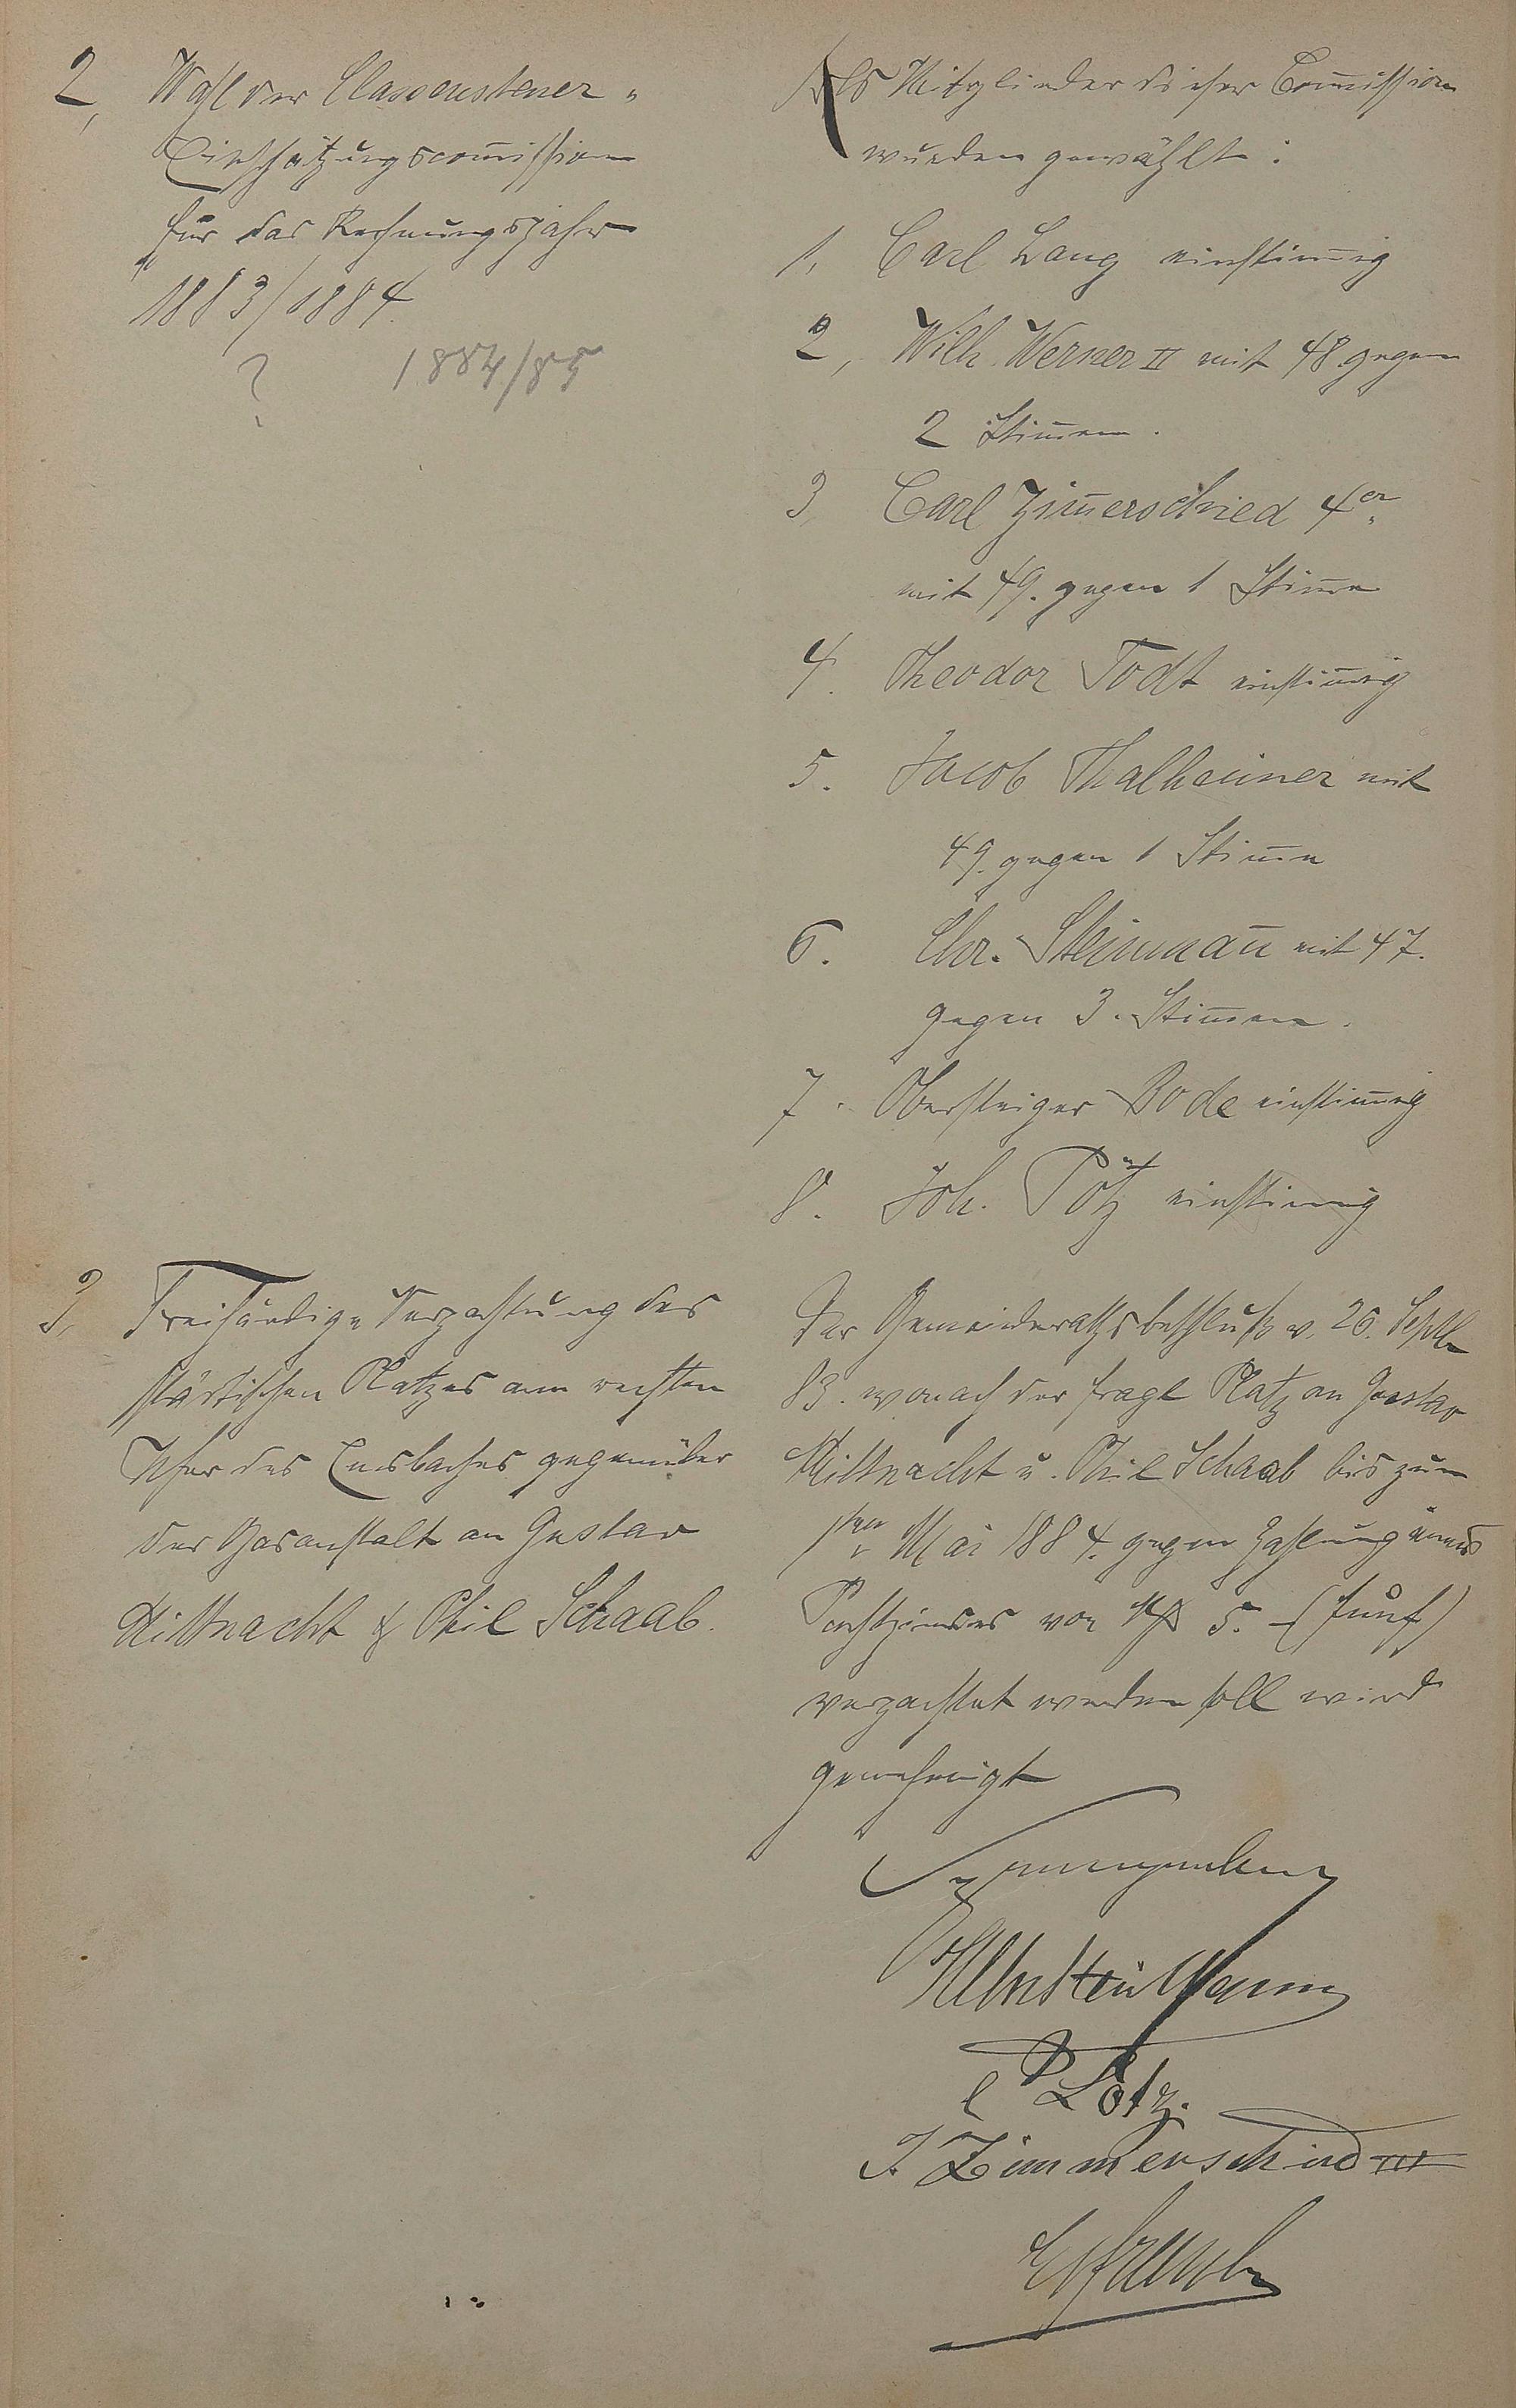 2, Wahl der Classensteuer-
Einschätzungscom̅ission
für das Rechnungsjahr
1883/1884.
? 1884/85
Als Mitglieder dieser Com̅ission
wurden gewählt:
1, Carl Lang einstim̅ig
2, Wilh. Werner II mit 48 gegen
2 Stim̅en.
3, Carl Zim̅erschied 4er
mit 49. gegen 1 Stim̅e
4. Theodor Todt einstim̅ig
5. Jacob Thalheimer mit
49. gegen 1 Stim̅e
6. Chr. Steinman̅ mit 47.
gegen 3. Stim̅en.
7. Obersteiger Bode einstim̅ig
8. Joh. Pötz einstim̅ig
3, Freihändige Verpachtung des
städtischen Platzes am rechten
Ufer des Emsbaches gegenüber
der Gasanstalt an Gustav
Hillnacht & Phil Schaab.
Der Gemeinderathsbeschluß v. 26. Septb
83. wonach der fragl Platz an Gustav
Hillnacht u. Phil Schaab bis zum
1ten Mai 1884. gegen Zahlung eines
Pachtzinses von M 5. – (fünf)
verpachtet werden soll wird
genehmigt
P Lotz.
J. Zimmerschied III